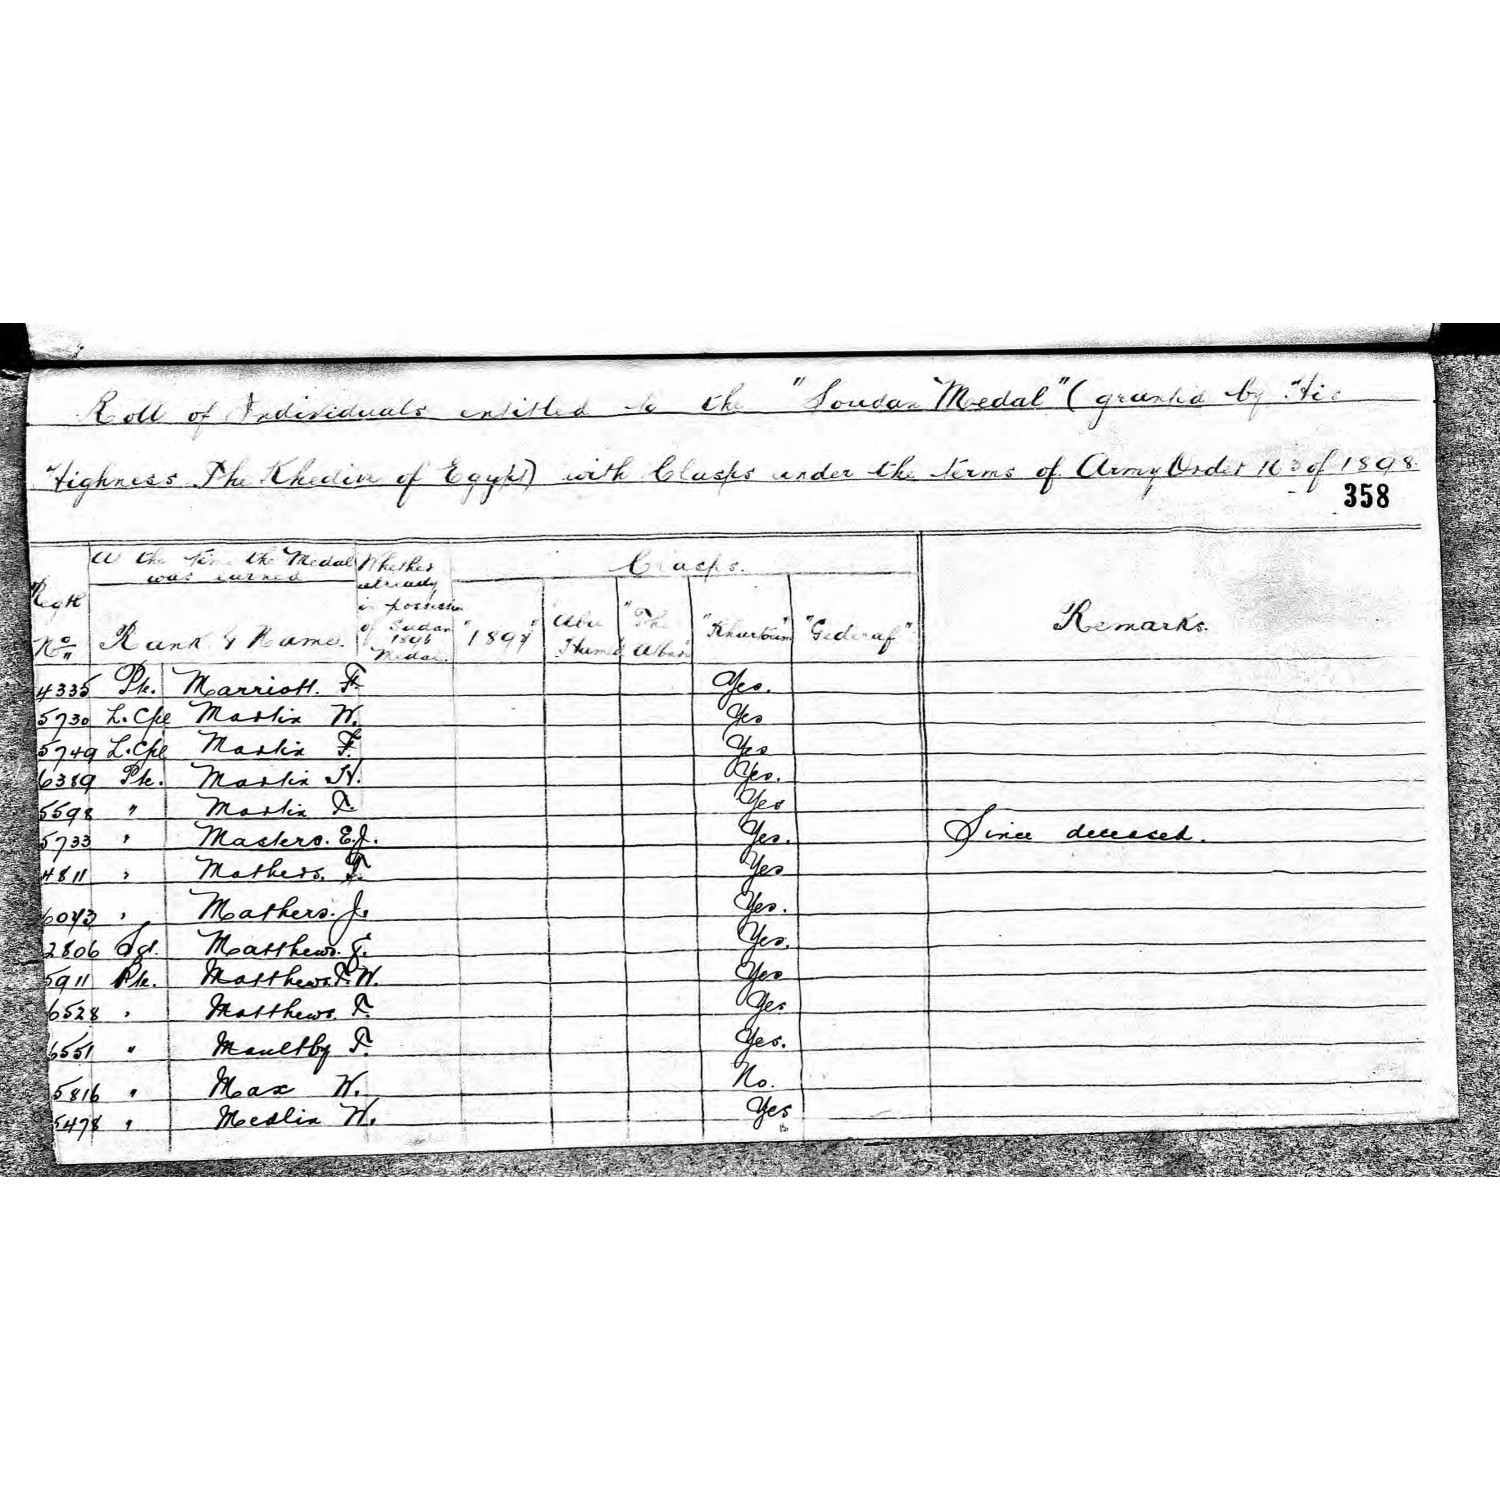 Roll of Individuals entitled to the "Soudan Medal" (granted by His
Highness The Khedive of Egypt) with Clasps under the terms of Army Order 163 of 1898.
358
Regtl No At the time the Medal was earned Whether already in possession of Sudan 1896 Medal. Clasps. Remarks.
Rank & Name. "1897" "Abu Hamed "The Atbara" "Khartoum" "Gedaraf"
4335 Pte. Marriott. F. Yes.
5730 L. Cpl Martin W. Yes
5749 L. Cpl Martin F. Yes
6389 Pte. Martin H. Yes.
5598 " Martin T. Yes
5733 " Masters. E.J. Yes. Since deceased.
4811 " Mathers. T. Yes
6043 " Mathers. J. Yes.
2806 Sgt. Matthews. Yes.
5911 Pte. Matthews. T.W. Yes
6528 " Matthews. T. Yes
6551 " Maultby T. Yes.
5816 " Max W. No.
5478 " Medlin W. Yes